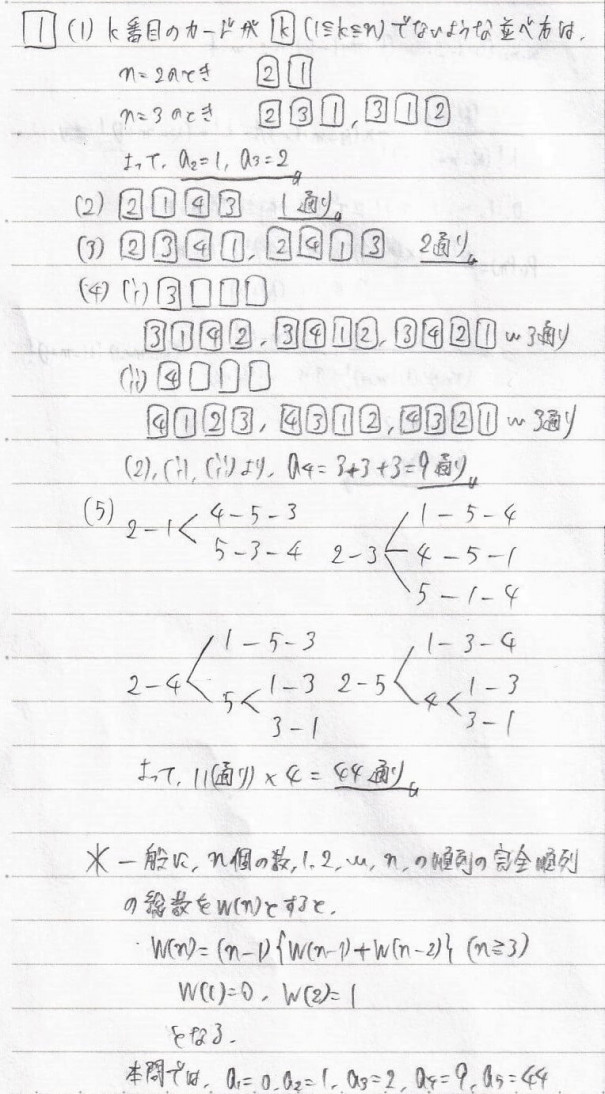 1 (1) k番目のカードが k (1≦k≦n)でないような並べ方は、
n=2のとき 2 1
n=3のとき 2 3 1, 3 1 2
よって、a₂=1, a₃=2
(2) 2 1 4 3 1通り
(3) 2 3 4 1, 2 4 1 3 2通り
(4) (i) 3 □ □ □
3 1 4 2, 3 4 1 2, 3 4 2 1 〜 3通り
(ii) 4 □ □ □
4 1 2 3, 4 3 1 2, 4 3 2 1 〜 3通り
(2), (i), (ii)より、a₄=3+3+3=9通り
(5) 2-1< 4-5-3
5-3-4
2-3 1-5-4
4-5-1
5-1-4
2-4< 1-5-3
5< 1-3
3-1
2-5< 1-3-4
4< 1-3
3-1
よって、11(通り)×4=44通り
* 一般に、n個の数,1,2,…,n,の順列の完全順列
の総数をW(n)とすると、
W(n)=(n-1){W(n-1)+W(n-2)} (n≧3)
W(1)=0, W(2)=1
となる.
本問では、a₁=0,a₂=1,a₃=2,a₄=9,a₅=44